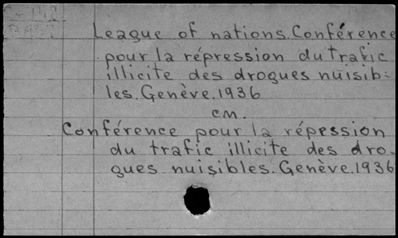 League of nations. Conférence
pour la répression du trafic
illicite des drogues nuisib-
les. Genève. 1936
cm.
Conférence pour la répession
du trafic illicite des dro-
gues nuisibles. Genève. 1936